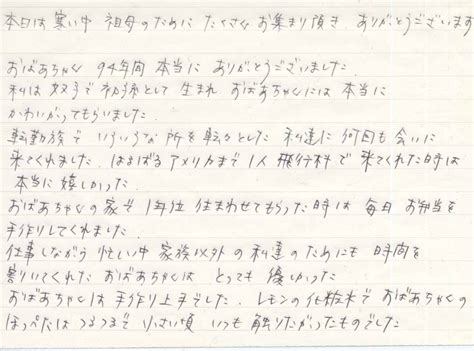 本日は 寒い中 祖母のために たくさん お集まり頂き ありがとうございます
おばあちゃん 94年間 本当に ありがとうございました
私は 女子で 初孫として 生まれ おばあちゃんには 本当に
かわいがってもらいました
転勤族で いろいろな所を転々とした 私達に 何回も会いに
来てくれました. はるばるアメリカまで 1人 飛行機で 来てくれた時は
本当に 嬉しかった.
おばあちゃんの家で 1年位 住まわせてもらった時は 毎日 お弁当を
手作りしてくれました.
仕事しながら 忙しい中 家族以外の 私達のためにも 時間を
割いてくれた おばあちゃんは とっても 優しかった
おばあちゃんは 手作り上手でした. レモンの化粧水で おばあちゃんの
ほっぺたは つるつるで 小さい頃 いつも 触りたがったものでした